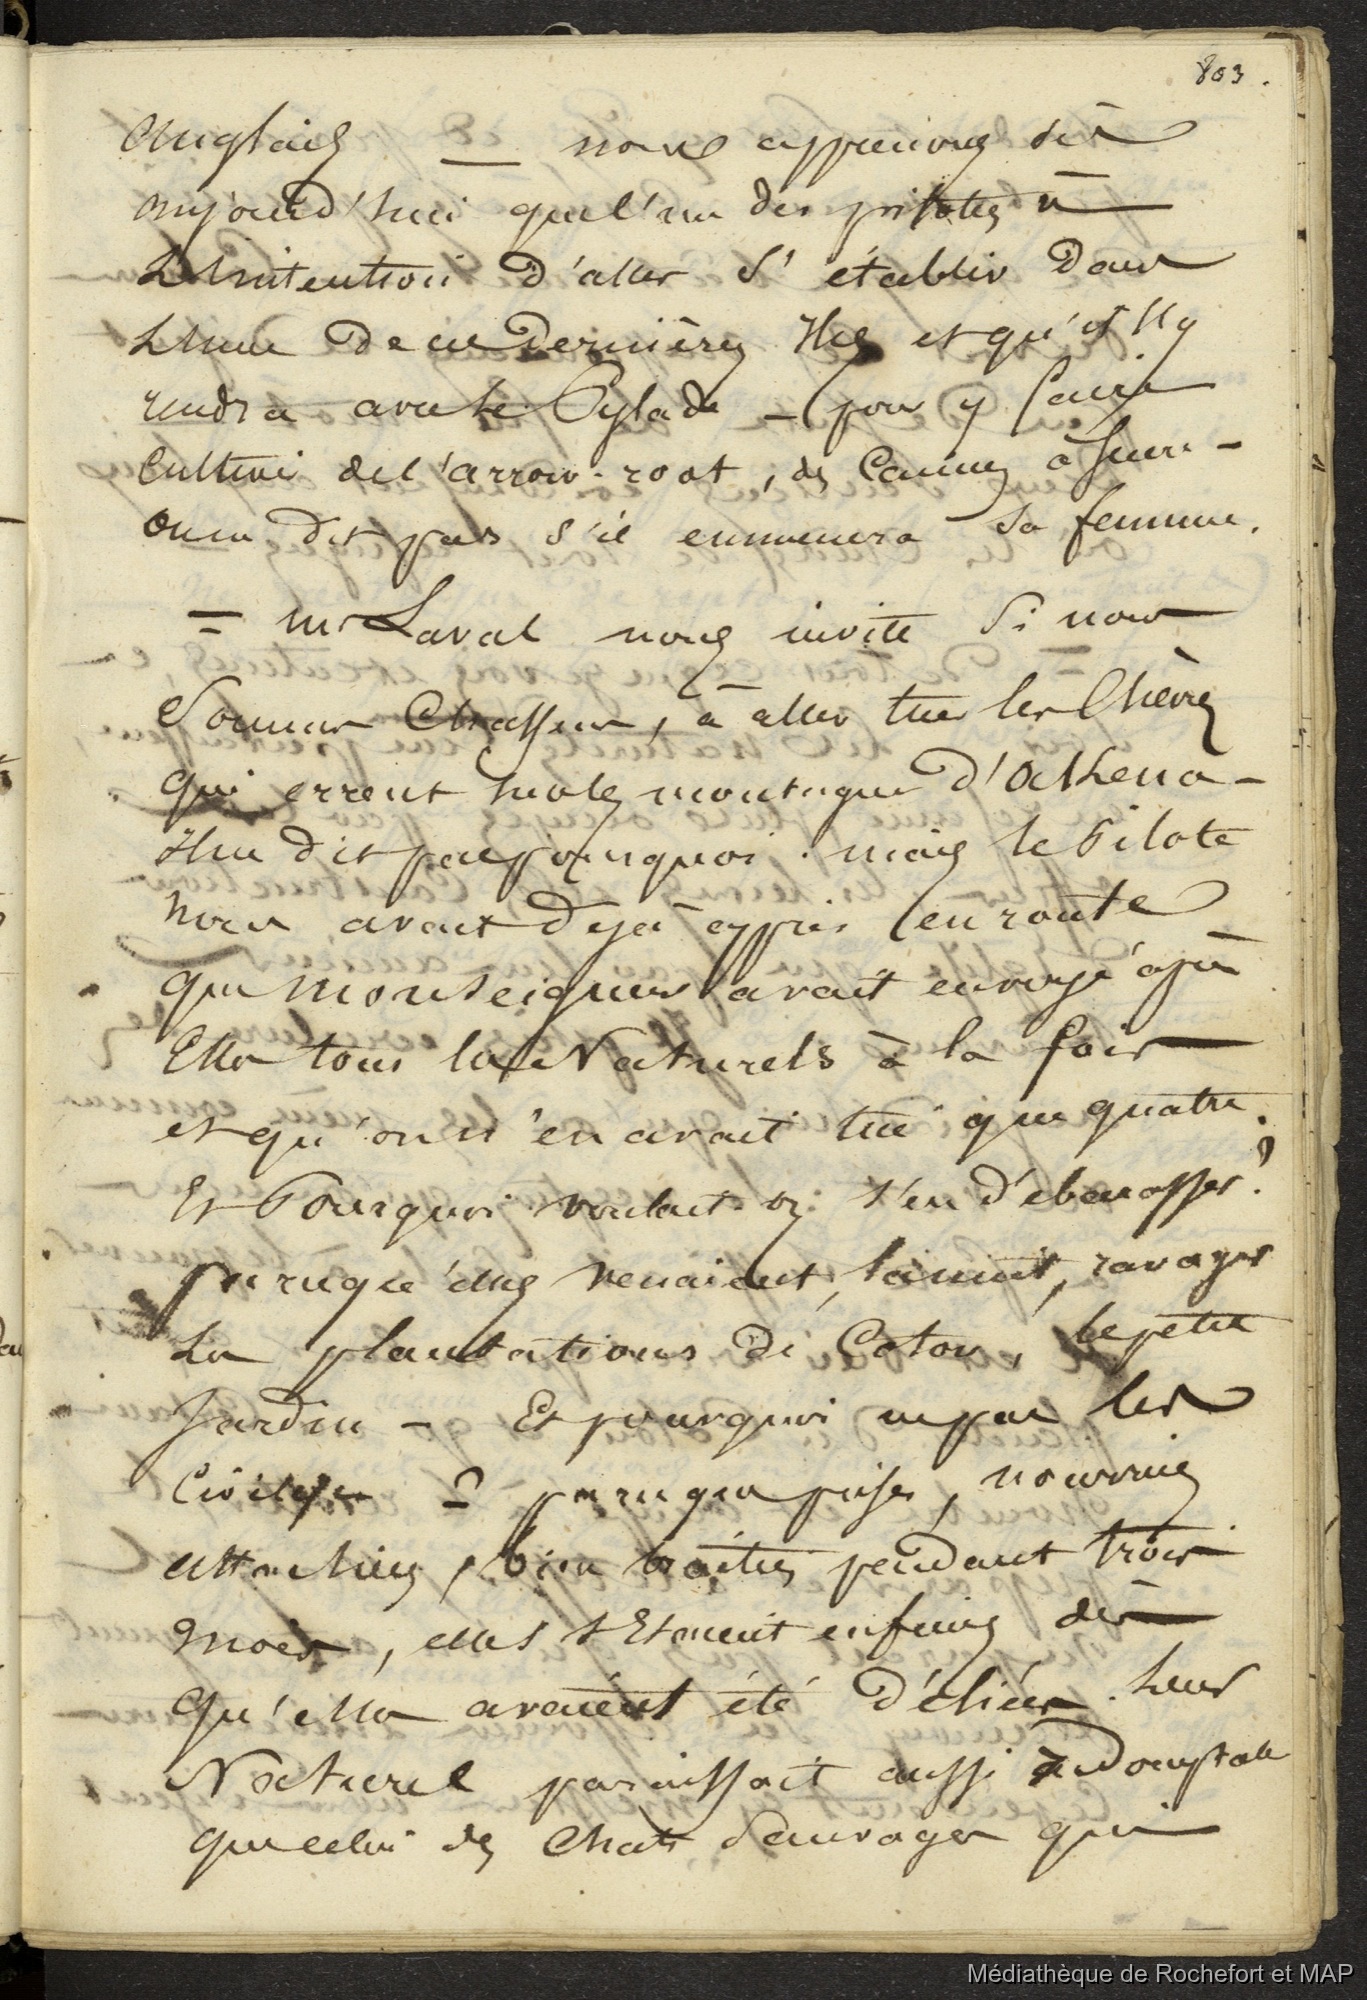 803.
Anglais — nous apprenons dès
aujourd'hui que l'un des pilotes a
L'intention d'aller s'établir dans
L'une de ces dernières Iles et qu'il s'y
rendra avec le Pylade — pour y faire
Culture de l'arrow-root, des Cannes à sucre —
on ne dit pas s'il emmenera sa femme.
= Mr Laval nous invite si nous
Sommes Chasseurs, à aller tuer les Chèvres
qui errent sur les montagnes d'Akena —
Il ne dit pas pourquoi. mais le Pilote
nous avait déjà appris en route
que Monseigneur avait envoyé après
Elles tous les Naturels à la fois
et qu'on n'en avait tué que quatre.
Et Pourquoi voulait-on s'en débarrasser?
parceque elles venaient, la nuit, ravager
Les plantations de Coton, le petit
Jardin — Et pourquoi ne pas les
Civiliser — ? parceque prises, nourries
attachées, bien traitées pendant trois
mois, elles s'étaient enfuies dès
qu'elles avaient été déliées. Leur
Naturel paraissait aussi indomptable
que celui des Chats Sauvages qui
Médiathèque de Rochefort et MAP